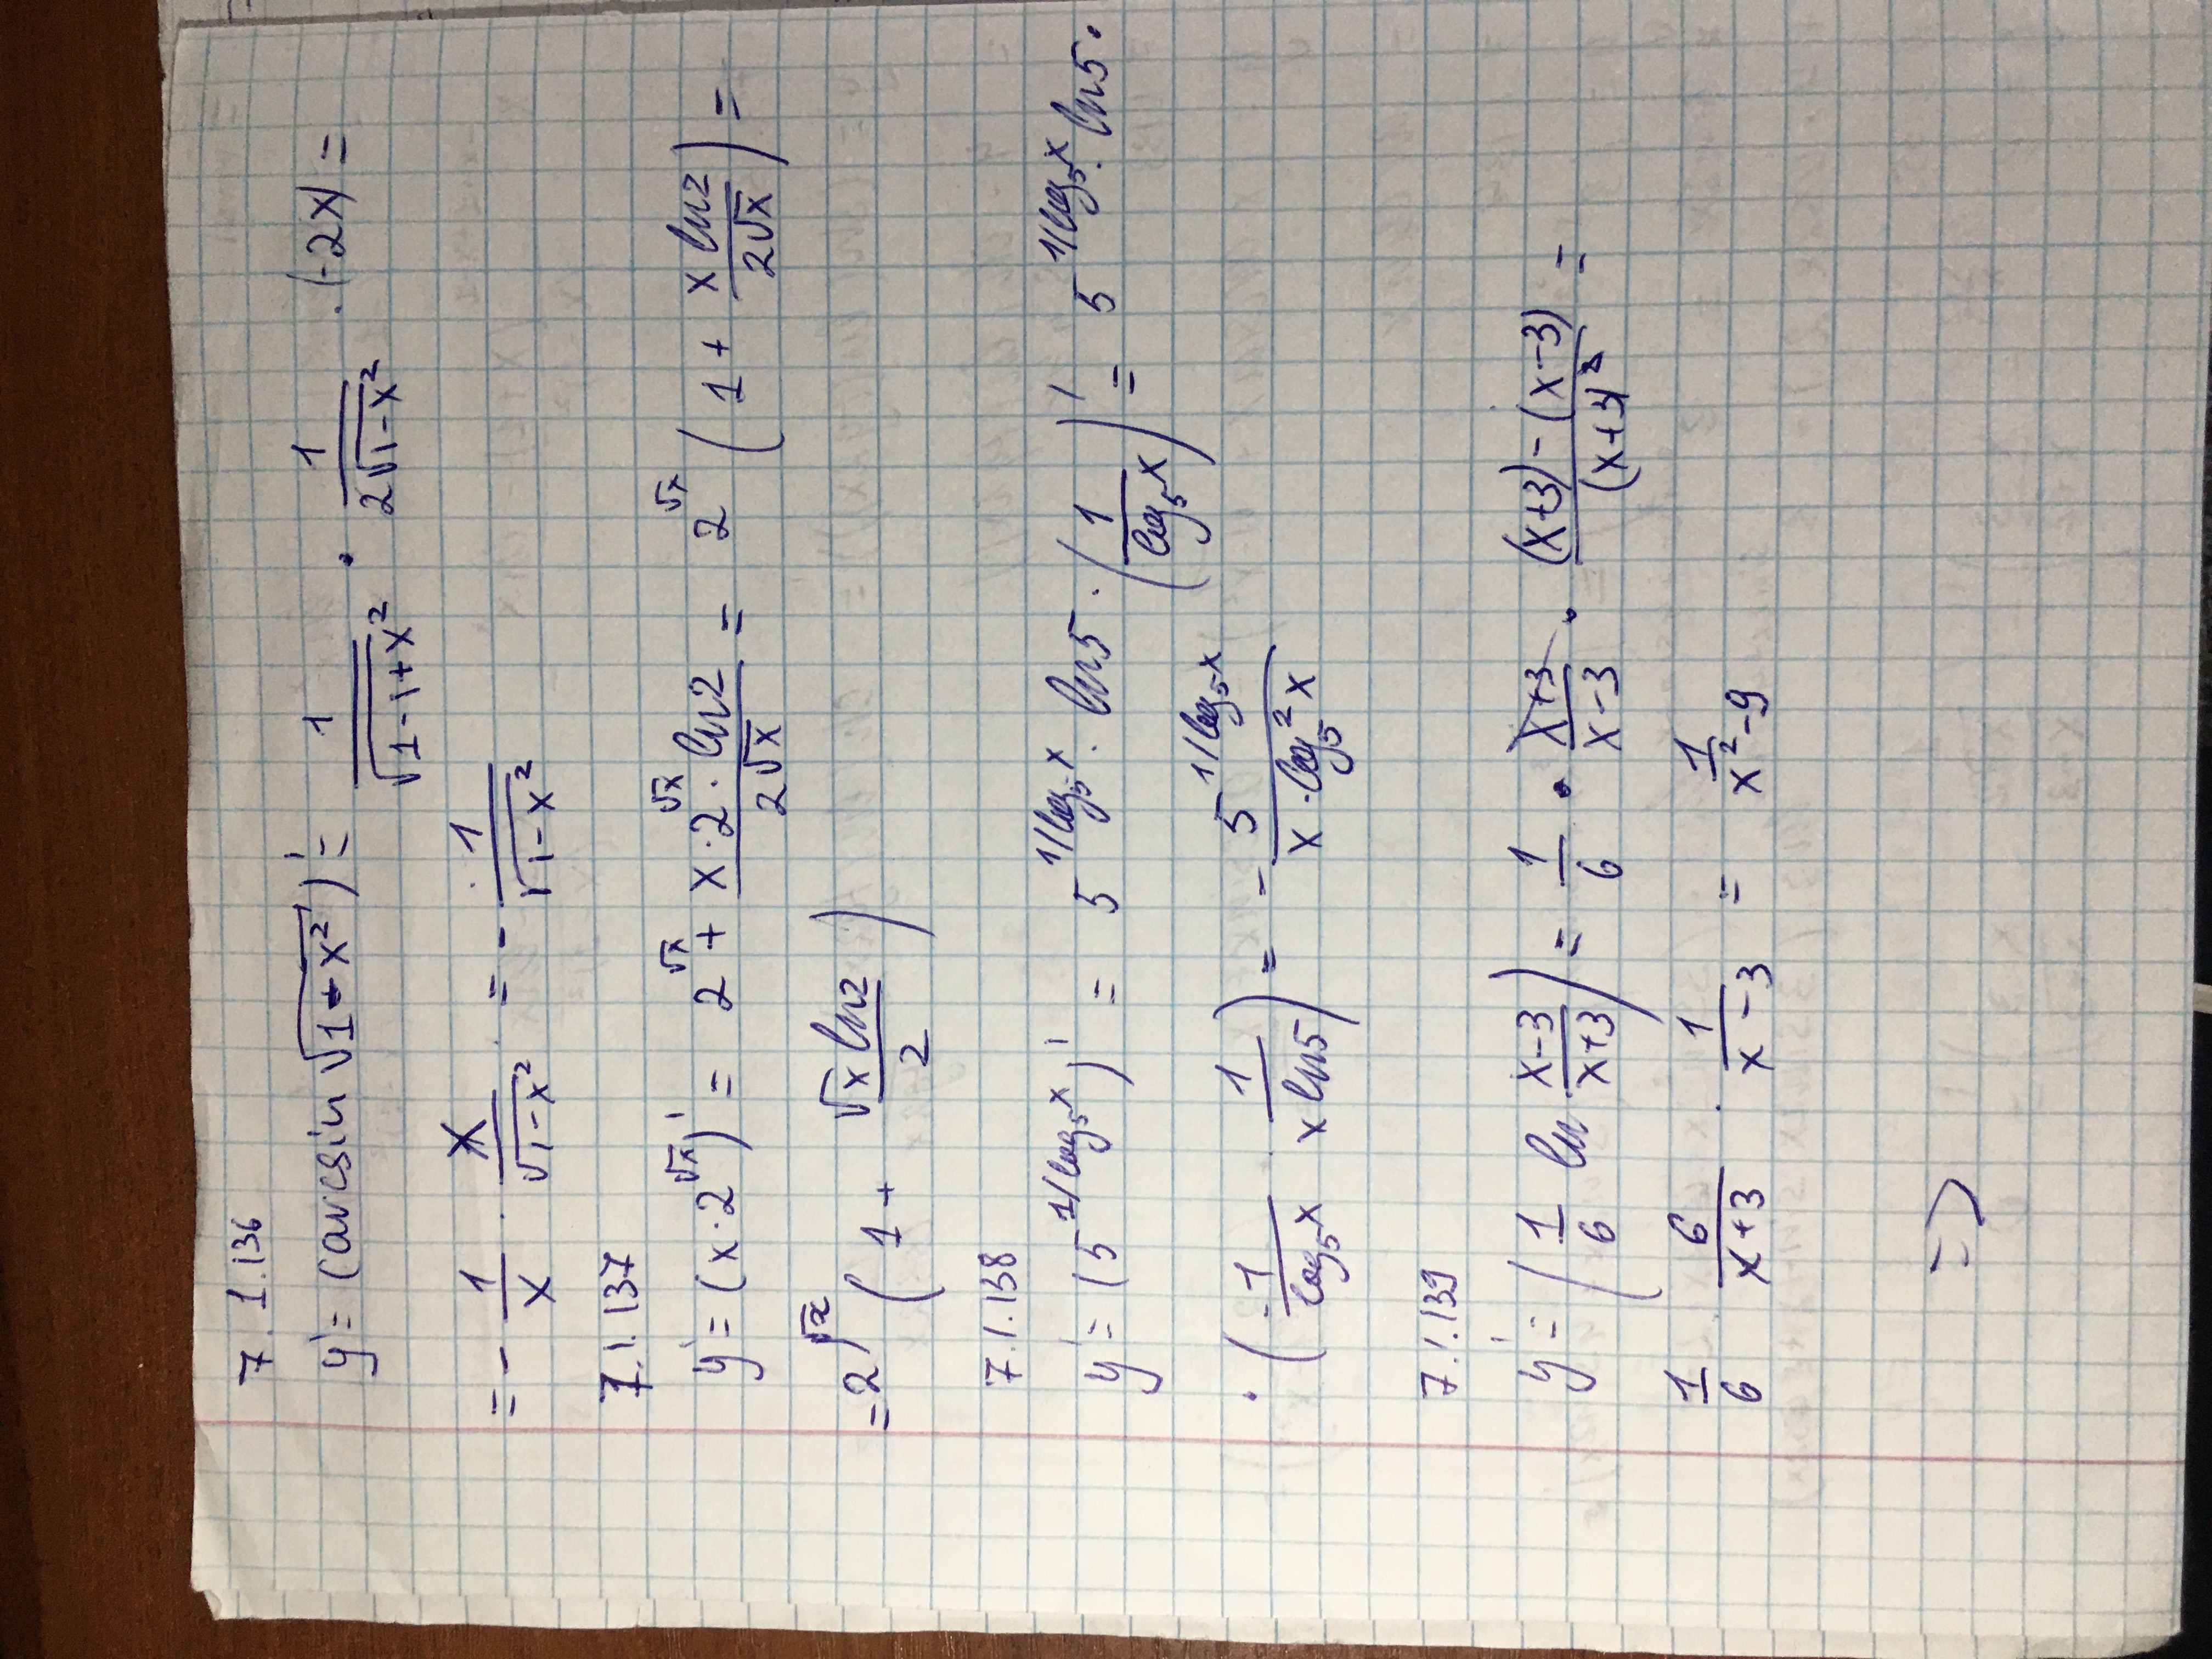 7.1.136
y' = (arcsin √(1-x²))' = 1/√(1-1+x²) · 1/(2√(1-x²)) · (-2x) =
= - 1/x · x/√(1-x²) = - 1/√(1-x²)
7.1.137
y' = (x·2^√x)' = 2^√x + (x·2^√x · ln2)/(2√x) = 2^√x (1 + (x ln2)/(2√x)) =
= 2^√x (1 + (√x ln2)/2)
7.1.138
y' = (5^(1/log₅x))' = 5^(1/log₅x) · ln5 · (1/log₅x)' = 5^(1/log₅x) · ln5 ·
· (-1/log₅x · 1/(x ln5)) = - 5^(1/log₅x)/(x · log₅²x)
7.1.139
y' = (1/6 ln (x-3)/(x+3)) = 1/6 · (x+3)/(x-3) · ((x+3)-(x-3))/(x+3)² =
1/6 · 6/(x+3) · 1/(x-3) = 1/(x²-9)
=>